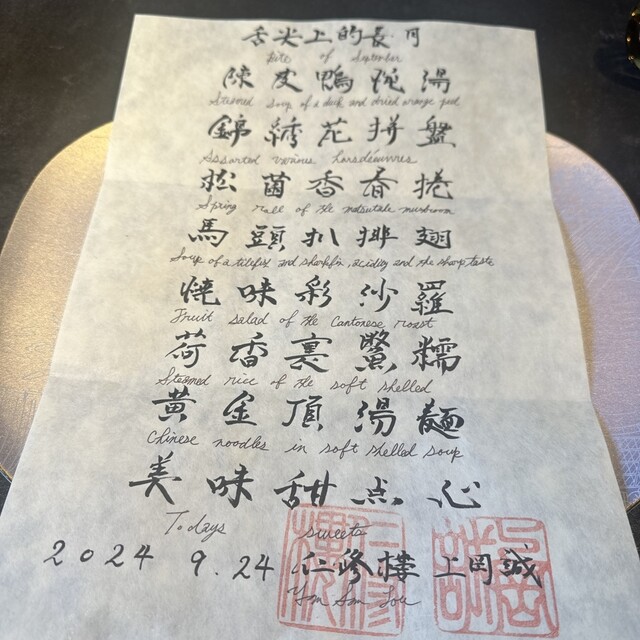 舌尖上的長月
Bite of September
陳皮鴨陀湯
Steamed soup of a duck and dried orange peel
錦綉花拼盤
Assorted various horsdéuvres
松茵香春捲
Spring roll of the matsutake mushroom
馬頭扒排翅
Soup of a tilefish and sharkfin, acidity and the sharp taste
焼味彩沙羅
Fruit salad of the Cantonese roast
荷香裹鱉糯
Steamed rice of the soft shelled
黄金頂湯麵
Chinese noodles in soft shelled soup
美味甜点心
Todays sweets
2024 9.24 仁修樓 上岡誠
Yan San Lou